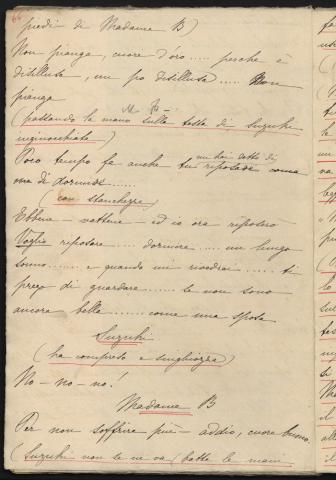 66
piedi di Madame B)
Non pianga, cuore d'oro.... perchè è
disillusa, un po disillusa..... Non
pianga
(posttando la mano sulla testa di Suzuki
inginocchiata—)
Poco tempo fa anche tu mi hai detto di riposare come
ma di dormire......
(con stanchezza)
Ebbene — vattene ed io ora riposerò
Voglio riposare.... dormire.... un lungo
sonno...... e quando mi rivedrai..... ti
prego di guardare..... se non sono
ancora bella...... come una sposa
Suzuki
(ha compreso e singhiozza)
No-no-no!
Madame B
Per non soffrire più — addio, cuore buono.
(Suzuki non se ne va (batte le mani